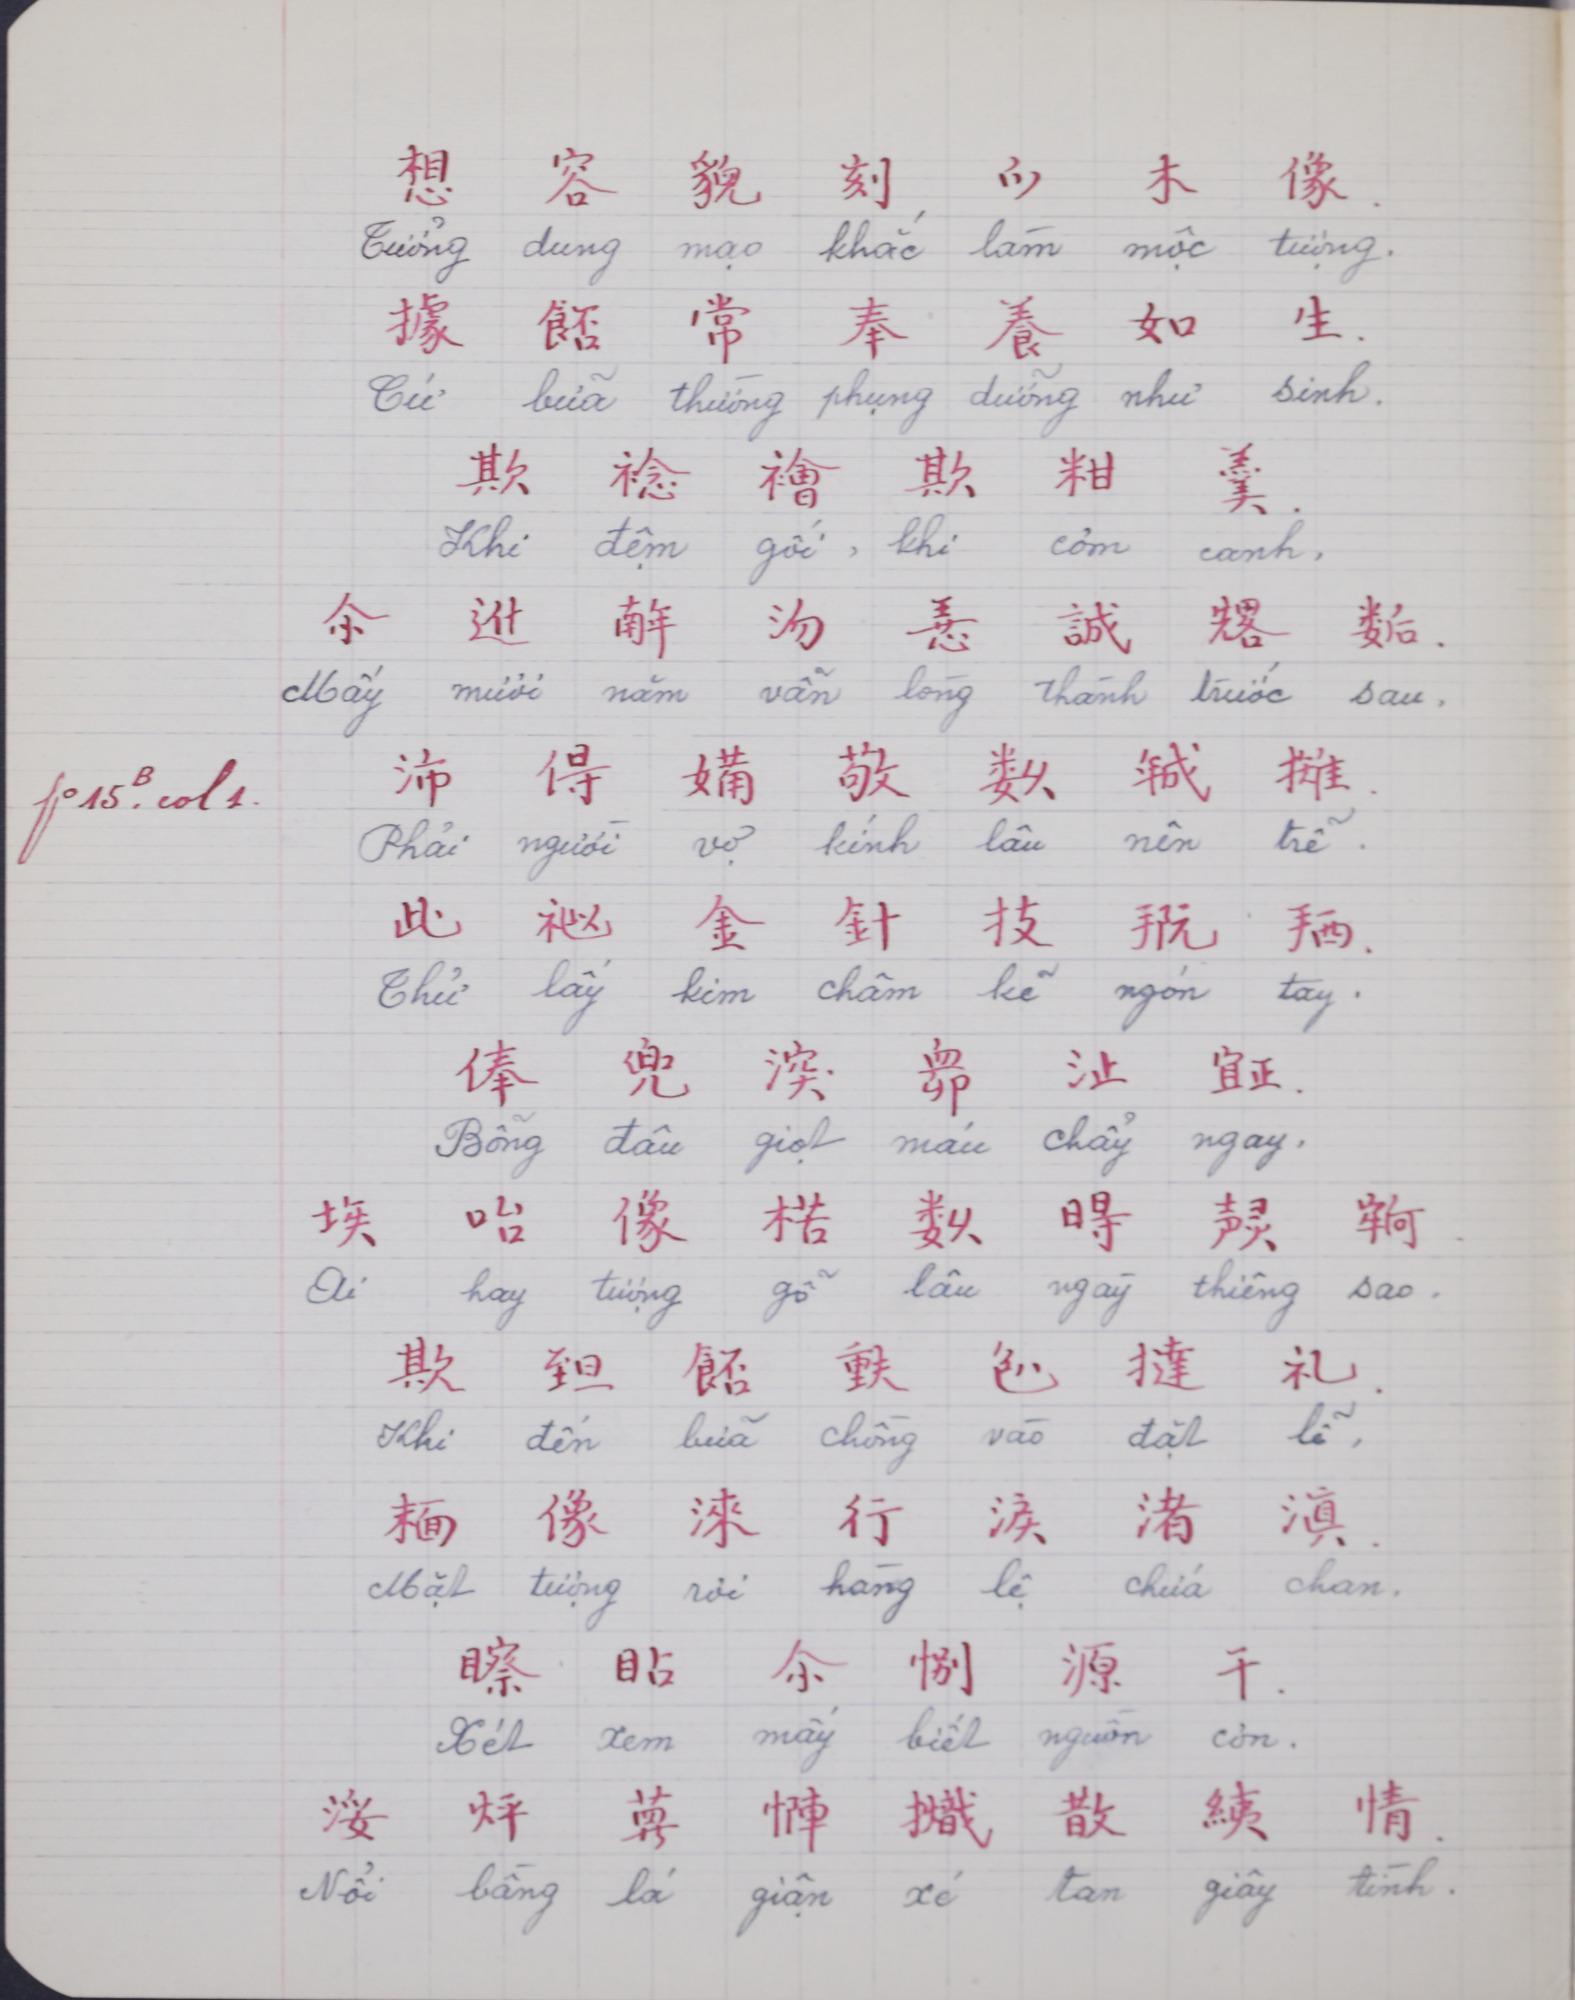 想 容 貌 刻 𫜵 木 像.
Tưởng dung mạo khắc làm mộc tượng.
據 𩛷 常 奉 養 如 生.
Cứ bữa thường phụng dưỡng như sinh.
欺 襘 欺 粓 羹.
Khi đệm gối, khi cơm canh,
氽 𨑮 𢆥 沕 誠 𠓀 𡢐.
Mấy mươi năm vẫn lòng thành trước sau,
沛 㝵 敬 𥹰
fº 15.B col 1.
Phải người vợ kính lâu nên trễ.
此 金 針 技 𢬣.
Thử lấy kim châm kẽ ngón tay.
俸 兜 沚
Bỗng đâu giọt máu chẩy ngay,
埃 咍 像 楛 𥹰 𣈜 𤍌
Ai hay tượng gỗ lâu ngày thiêng sao.
欺 𦤾 𩛷 𠓨 撻 礼.
Khi đến bữa chồng vào đặt lễ,
𩈘 像 淶 行 淚 渚 滇.
Mặt tượng rơi hàng lệ chứa chan.
瞭 䀡 氽 別 源 干.
Xét xem mấy biết nguồn cơn.
浽 散 情.
Nổi bằng lá giận xé tan giây tình.